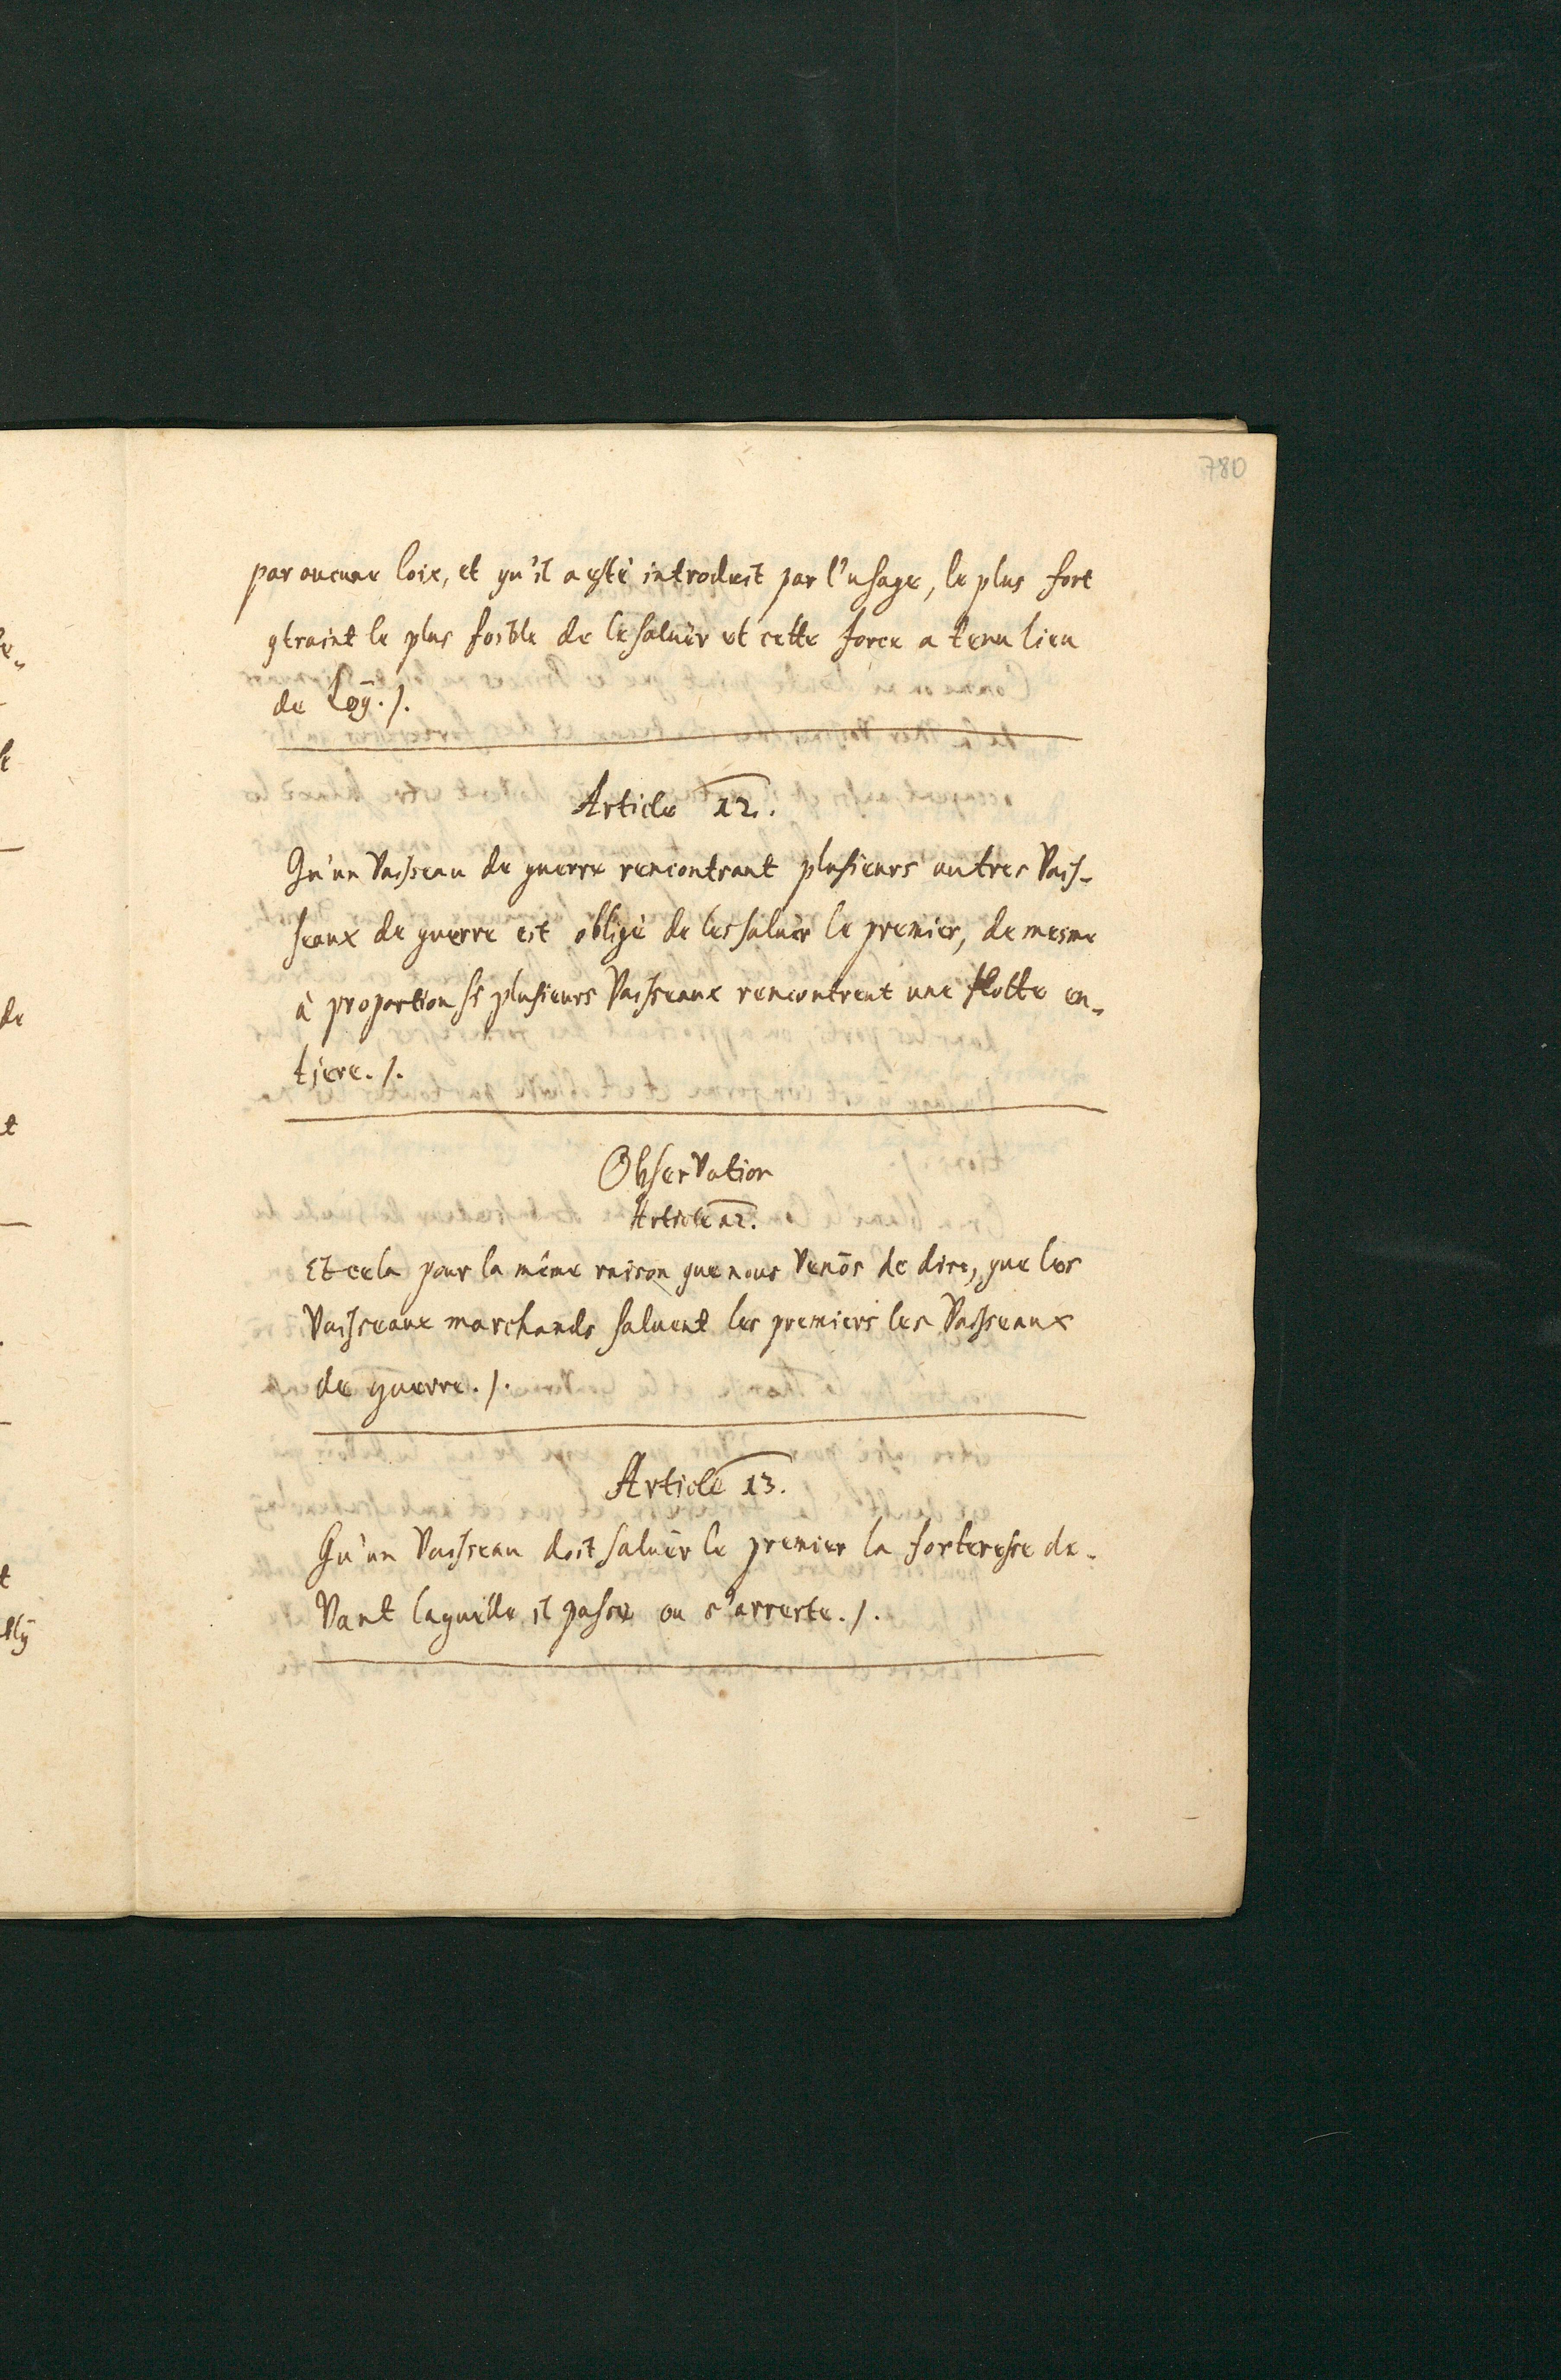 780
par aucune loix, et qu'il a esté introduit par l'usage, le plus fort
9traint le plus foible de le saluër et cette force a tenu lieu
de Loÿ ./.
Article 12.
Qu'un Vaisseau de guerre rencontrant plusieurs autres Vais-
seaux de guerre est obligé de les saluër le premier, de mesme
à proportion si plusieurs Vaisseaux rencontrent une flotte en-
tjere ./.
Observation
Article 12.
Et cela pour la même raison que nous venōs de dire, que les
Vaisseaux marchands saluent les premiers les Vaisseaux
de guerre ./.
Article 13.
Qu'un Vaisseau doit saluër le premier la forteresse de-
vant laquelle il passe ou s'arreste ./.